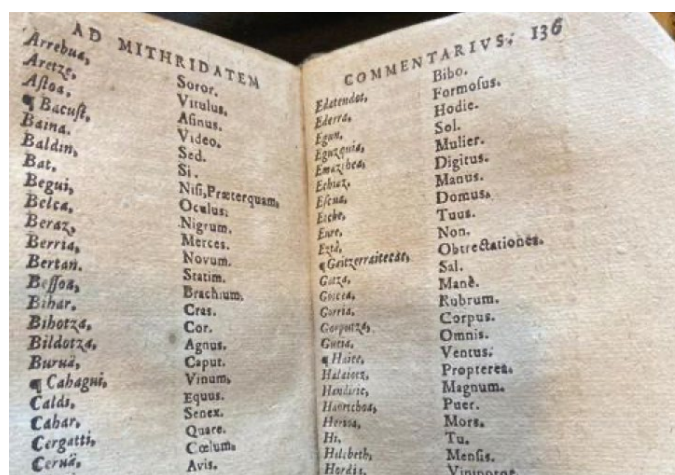 AD MITHRIDATEM
Arrebuá, Soror.
Aretze, Vitulus.
Aſtoa, Aſinus.
¶ Bacuſt, Video.
Baina. Sed.
Baldin, Si.
Bat, Niſi,Præterquam,
Begui, Oculus.
Belca, Nigrum.
Beraz, Merces.
Berria, Novum.
Bertan. Statim.
Beſſoa, Brachium.
Bihar, Cras.
Bihotza, Cor.
Bildotza, Agnus.
Buruä, Caput.
¶ Cahagui, Vinum,
Caldi, Equus.
Cahar, Senex.
Cergatti, Quare.
Ceruä, Cœlum.
Avis.
COMMENTARIVS. 136
Edatendot, Bibo.
Ederra, Formoſus.
Egun, Hodie.
Eguzquia, Sol.
Mulier.
Digitus.
Eſcua, Manus.
Etche, Domus.
Eure, Tuus.
Eztà, Non.
¶ Gaitzerraiteac, Obtrectationes.
Gatza, Sal.
Goicea, Manè.
Gorria, Rubrum.
Gorputza, Corpus.
Gucia, Omnis.
¶ Haice, Ventus.
Propterea.
Handiric, Magnum.
Haurichoa, Puer.
Herioa, Mors.
Hi, Tu.
Hilebeth, Menſis.
Hordit,